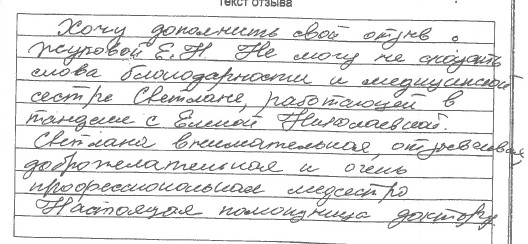 текст отзыва
Хочу дополнить свой отзыв о
Жуковой Е.Н Не могу не сказать
слова благодарности и медицинской
сестре Светлане, работающей в
тандеме с Еленой Николаевной.
Светлана внимательная, отзывчивая,
доброжелательная и очень
профессиональная медсестра
Настоящая помощница доктору.